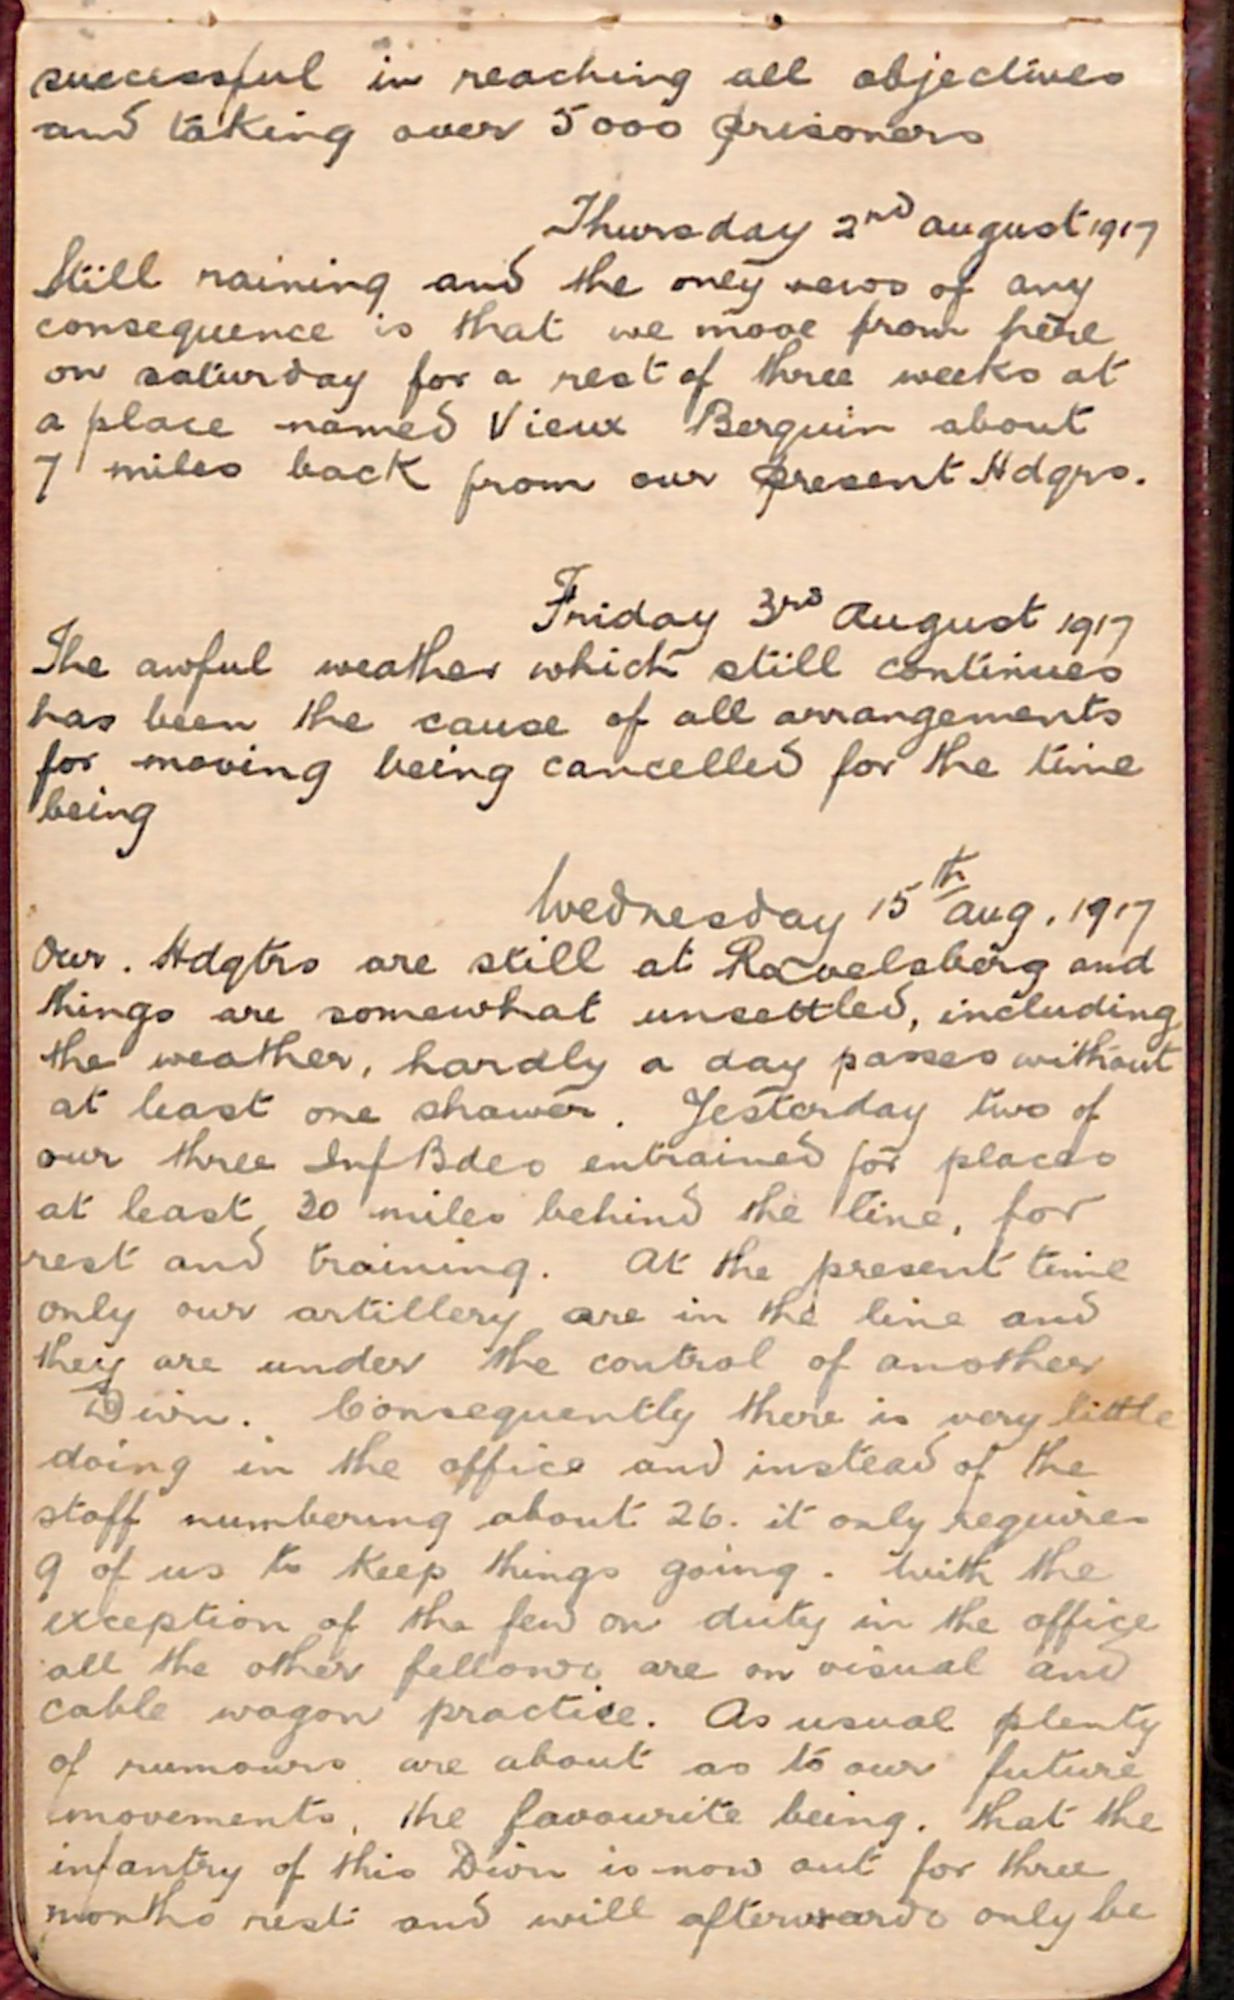 successful in reaching all objectives
and taking over 5000 prisoners
Thursday 2nd august 1917
Still raining and the only news of any
consequence is that we move from here
on saturday for a rest of three weeks at
a place named Vieux Berquin about
7 miles back from our present Hdqrs.
Friday 3rd August 1917
The awful weather which still continues
has been the cause of all arrangements
for moving being cancelled for the time
being
Wednesday 15th aug. 1917
Our. Hdqtrs are still at Ravelsberg and
things are somewhat unsettled, including
the weather, hardly a day passes without
at least one shower. Yesterday two of
our three Inf Bdes entrained for places
at least 30 miles behind the line, for
rest and training. At the present time
only our artillery are in the line and
they are under the control of another
Divn. Consequently there is very little
doing in the office and instead of the
staff numbering about 26. it only requires
9 of us to keep things going. With the
exception of the few on duty in the office
all the other fellows are on visual and
cable wagon practice. As usual plenty
of rumours are about as to our future
movements, the favourite being. that the
infantry of this Divn is now out for three
months rest and will afterwards only be